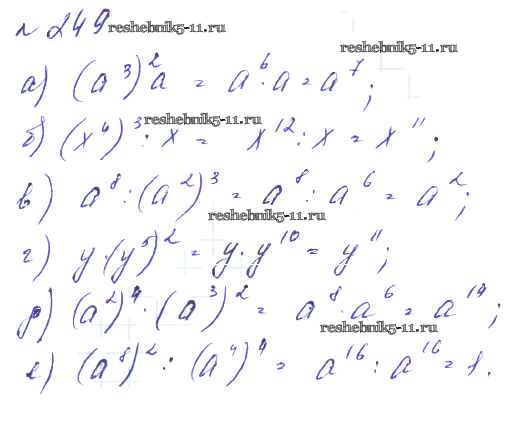 № 249 reshebnik5-11.ru
reshebnik5-11.ru
а) (a³)²a = a⁶·a = a⁷;
reshebnik5-11.ru
б) (x⁴)³ : x = x¹² : x = x¹¹;
в) a⁸ : (a²)³ = a⁸ : a⁶ = a²;
reshebnik5-11.ru
г) y·(y⁵)² = y·y¹⁰ = y¹¹;
д) (a²)⁴·(a³)² = a⁸·a⁶ = a¹⁴;
reshebnik5-11.ru
е) (a⁸)² : (a⁴)⁴ = a¹⁶ : a¹⁶ = 1.